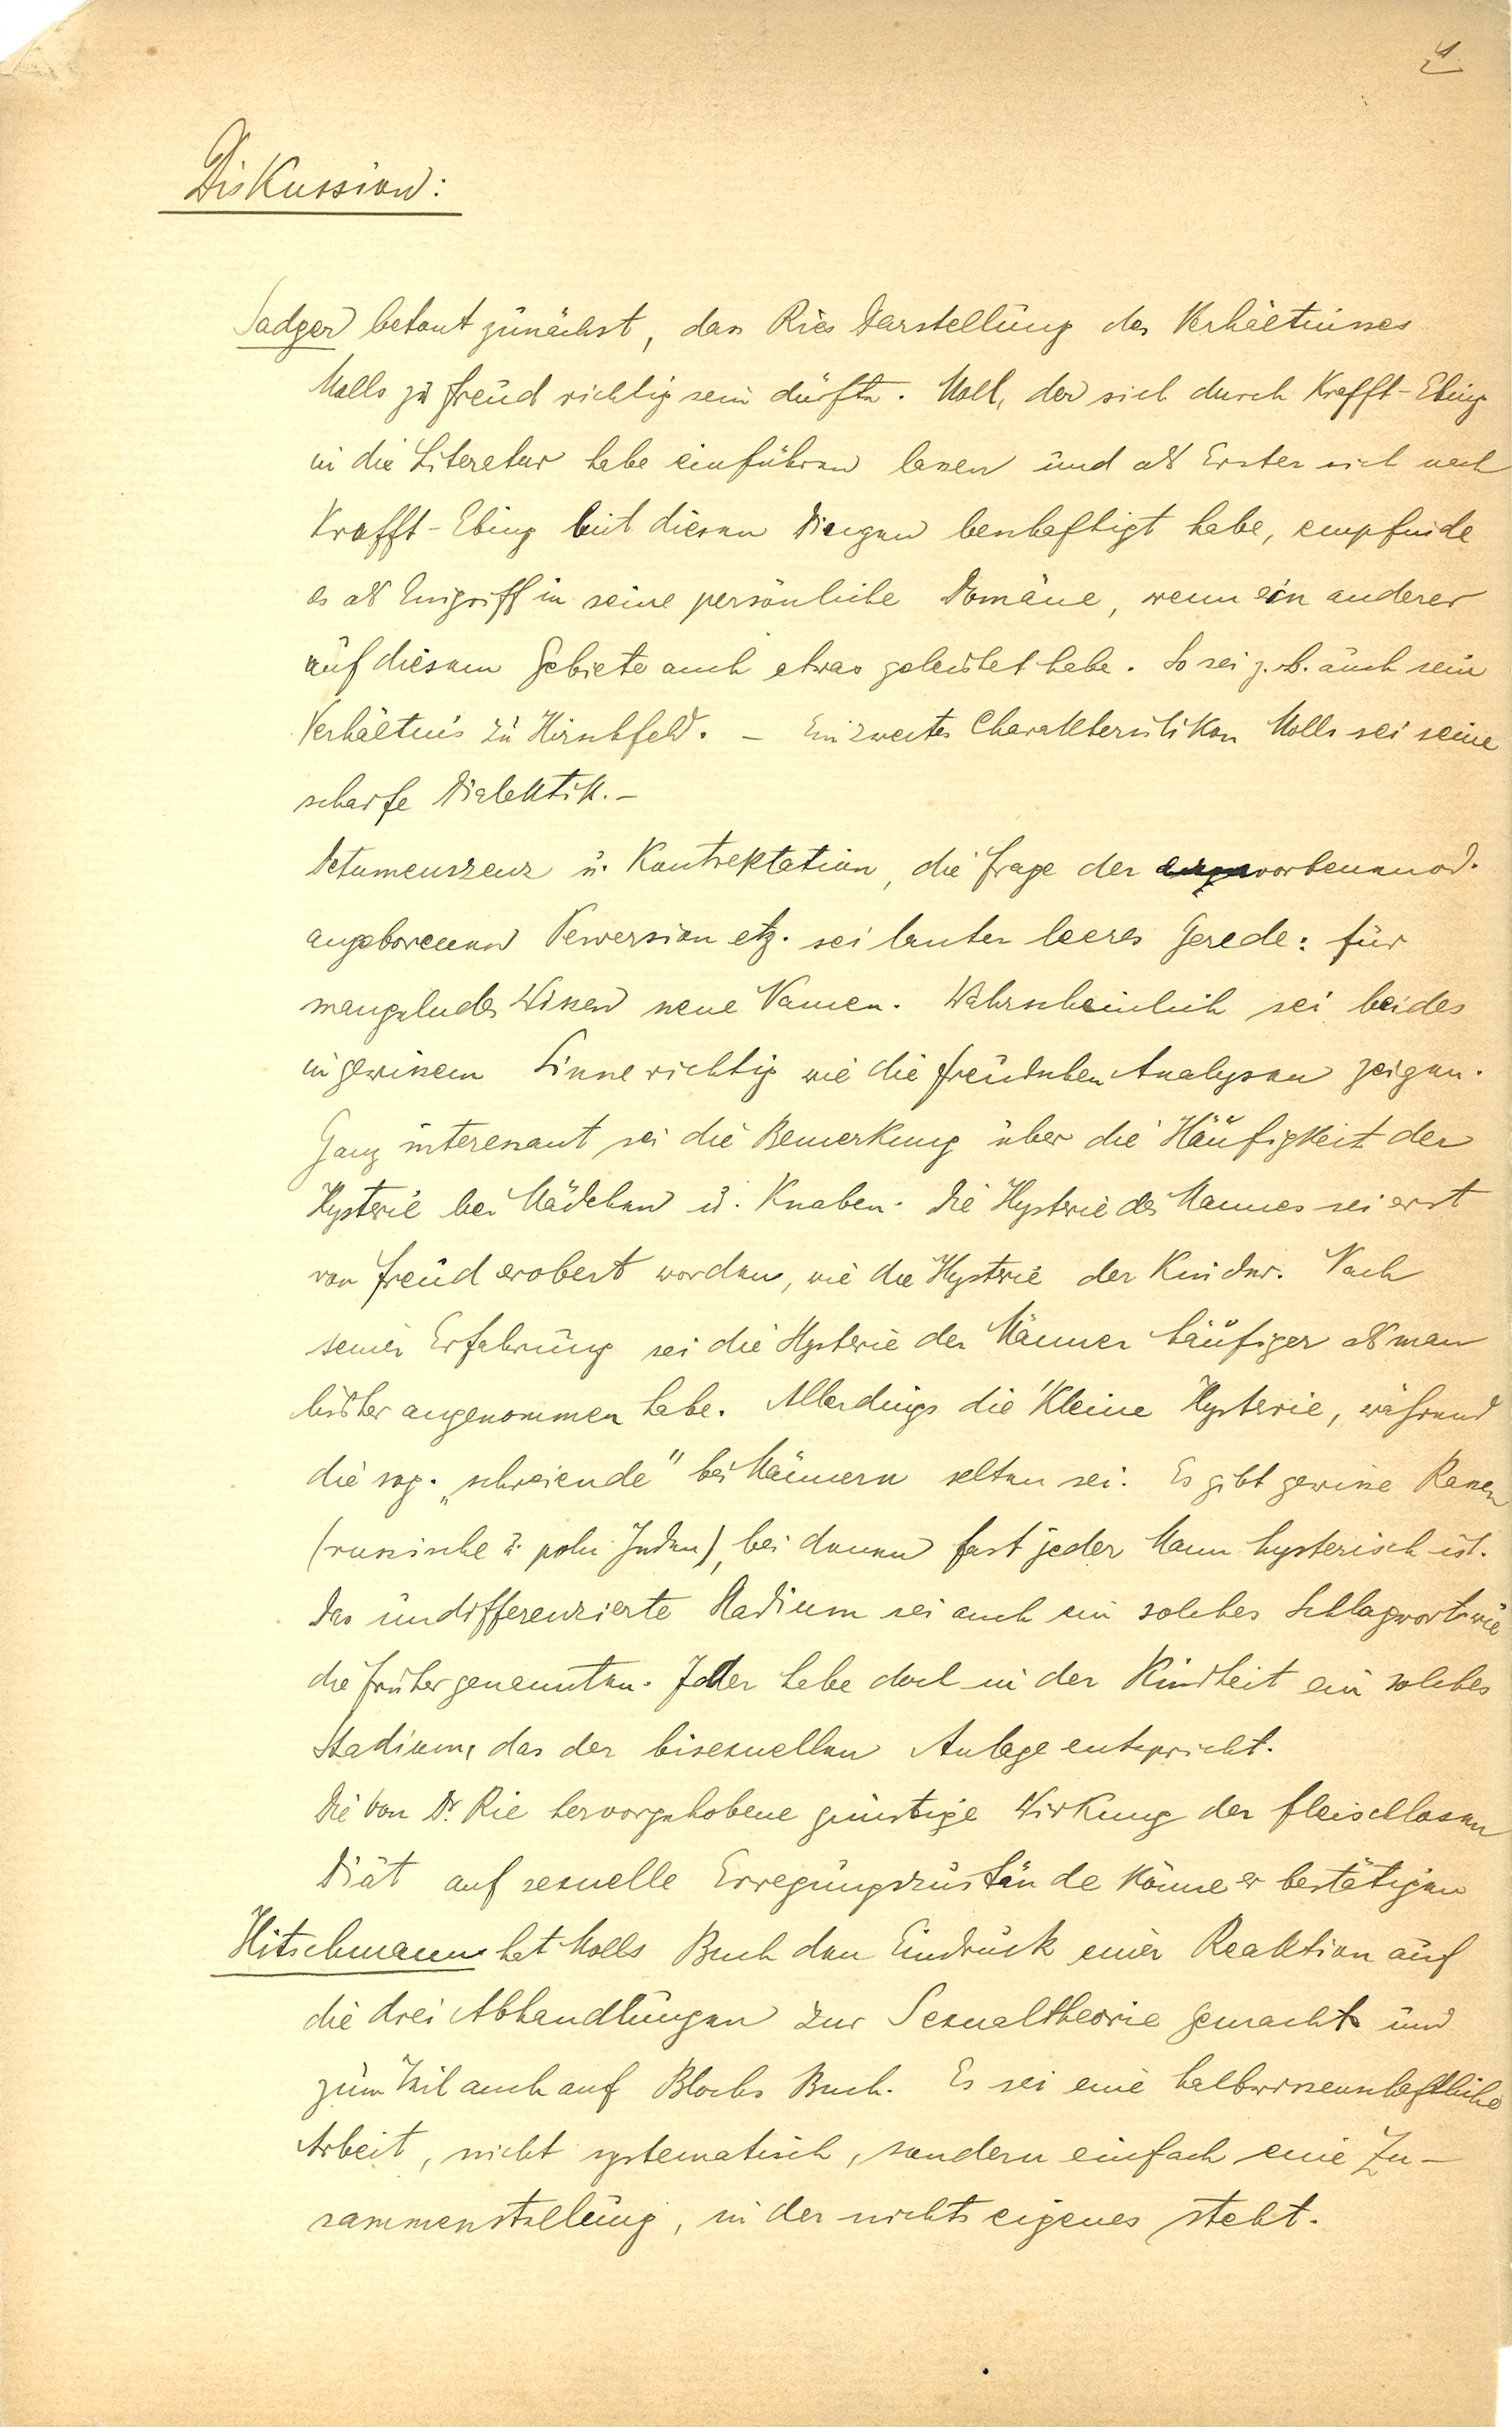 4
Diskussion:
Sadger betont zunächst, dass Ries Darstellung des Verhältnisses
Molls zu Freud richtig sein dürfte. Moll, der sich durch Krafft-Ebing
in die Literatur habe einführen lassen und als Erster sich nach
Krafft-Ebing mit diesen Dingen beschäftigt habe, empfinde
es als Eingriff in seine persönliche Domäne, wenn ein anderer
auf diesem Gebiete auch etwas geleistet habe. So sei z.B. auch sein
Verhältnis zu Hirschfeld. – Ein zweites Charakteristikon Molls sei seine
scharfe Dialektik. –
Detumenszenz u. Kontrektation, die Frage der erworbenen od.
angeborenen Perversion etz. sei lauter leeres Gerede: für
mangelndes Wissen neue Namen. Wahrscheinlich sei beides
in gewissem Sinne richtig wie die Freudschen Analysen zeigen.
Ganz interessant sei die Bemerkung über die Häufigkeit der
Hysterie bei Mädchen u. Knaben. Die Hysterie des Mannes sei erst
von Freud erobert worden, wie die Hysterie der Kinder. Nach
seiner Erfahrung sei die Hysterie der Männer häufiger als man
bisher angenommen habe. Allerdings die kleine Hysterie, während
die sog. „schreiende" bei Männern selten sei. Es gibt gewisse Rassen
(russische u. poln. Juden), bei denen fast jeder Mann hysterisch ist.
Das undifferenzierte Stadium sei auch ein solches Schlagwort wie
die früher genannten. Jeder habe doch in der Kindheit ein solches
Stadium, das der bisexuellen Anlage entspricht.
Die von Dr. Rie hervorgehobene günstige Wirkung der fleischlosen
Diät auf sexuelle Erregungszustände könne er bestätigen
Hitschmann hat Molls Buch den Eindruck einer Reaktion auf
die drei Abhandlungen zur Sexualtheorie gemacht und
zum Teil auch auf Blochs Buch. Es sei eine halbwissenschaftliche
Arbeit, nicht systematisch, sondern einfach eine Zu-
sammenstellung, in der nichts eigenes steht.